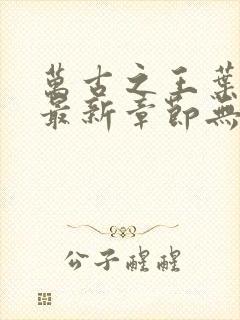 萬古之王葉
最新章節無
公子醒醒